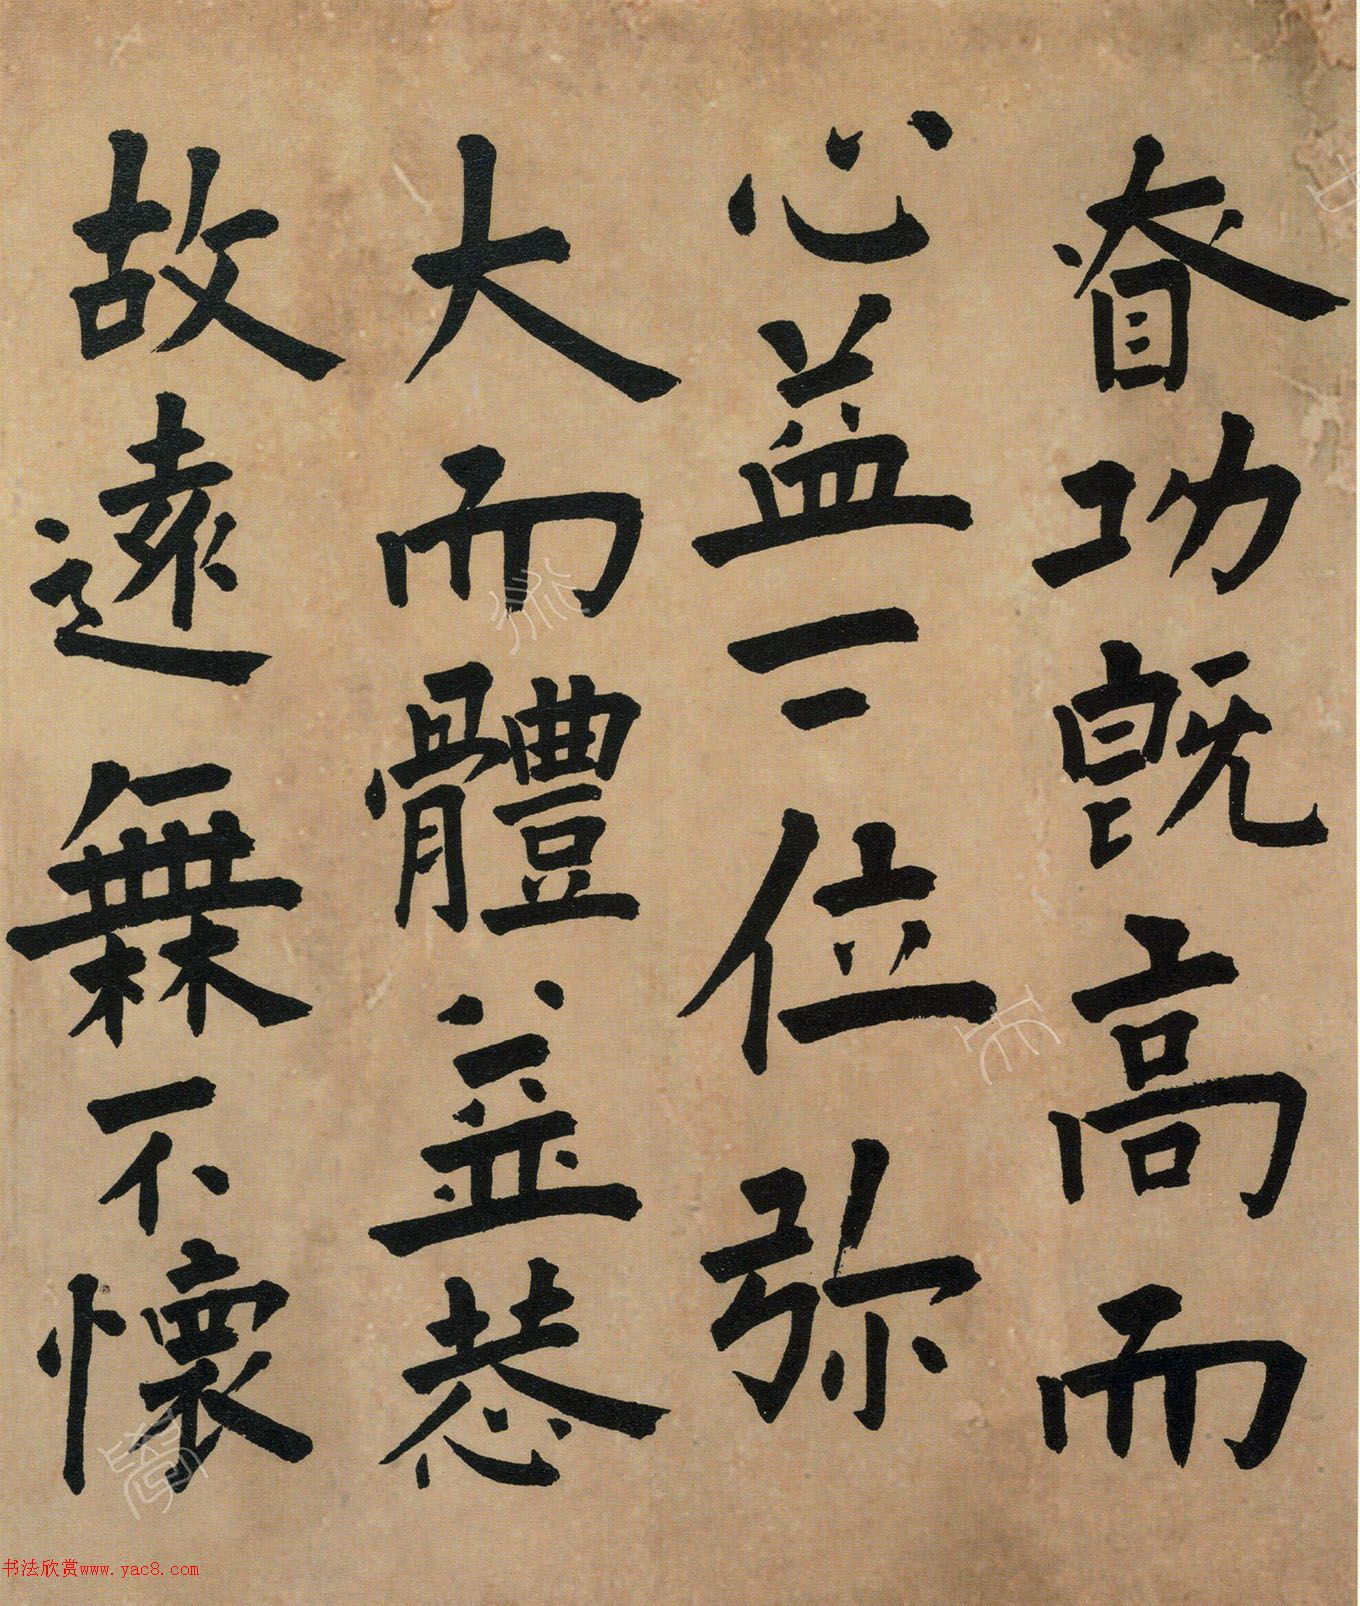 眘功既高而
心益下位弥
大而體益恭
故遠無不懷
书法欣赏www.yac8.com